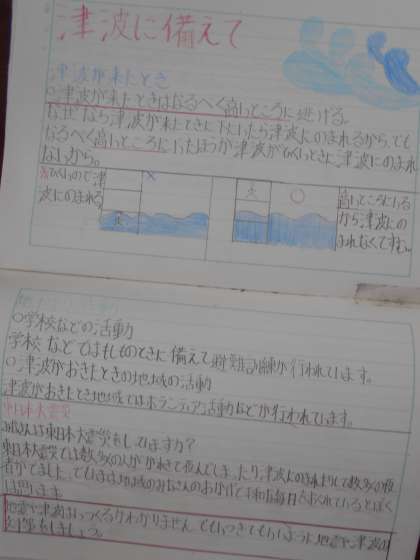 津波に備えて
津波が来たとき
○津波が来たときはなるべく高いところに逃げる。
なぜなら津波が来たときに下にいたら津波にのまれるから、でも
なるべく高いところにいたほうが津波がひくいときに津波にのまれ
ないから。
ひくいので津
波にのまれる
×
○
高いところにいる
から津波にの
まれなくてすむ。
○学校などの活動
学校などではもしものときに備えて避難訓練が行われています。
○津波がおきたときの地域の活動
津波がおきたとき地域ではボランティア活動などが行われています。
東日本大震災
みなさんは東日本大震災をしっていますか？
東日本大震災では数多くの人が
地域のみなさんのおかげで平和な毎日をおくれているとぼく
は思います。
地震や津波はいつくるかわかりません。でもいつきてもいいように地震や津波の
対策をしましょう。